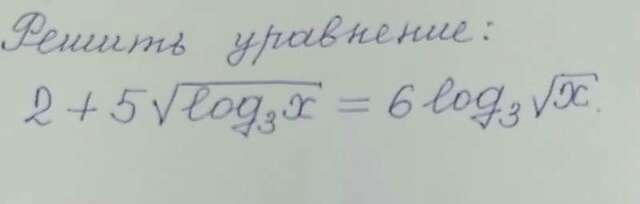 Решить уравнение:
2 + 5√log₃x = 6 log₃√x.